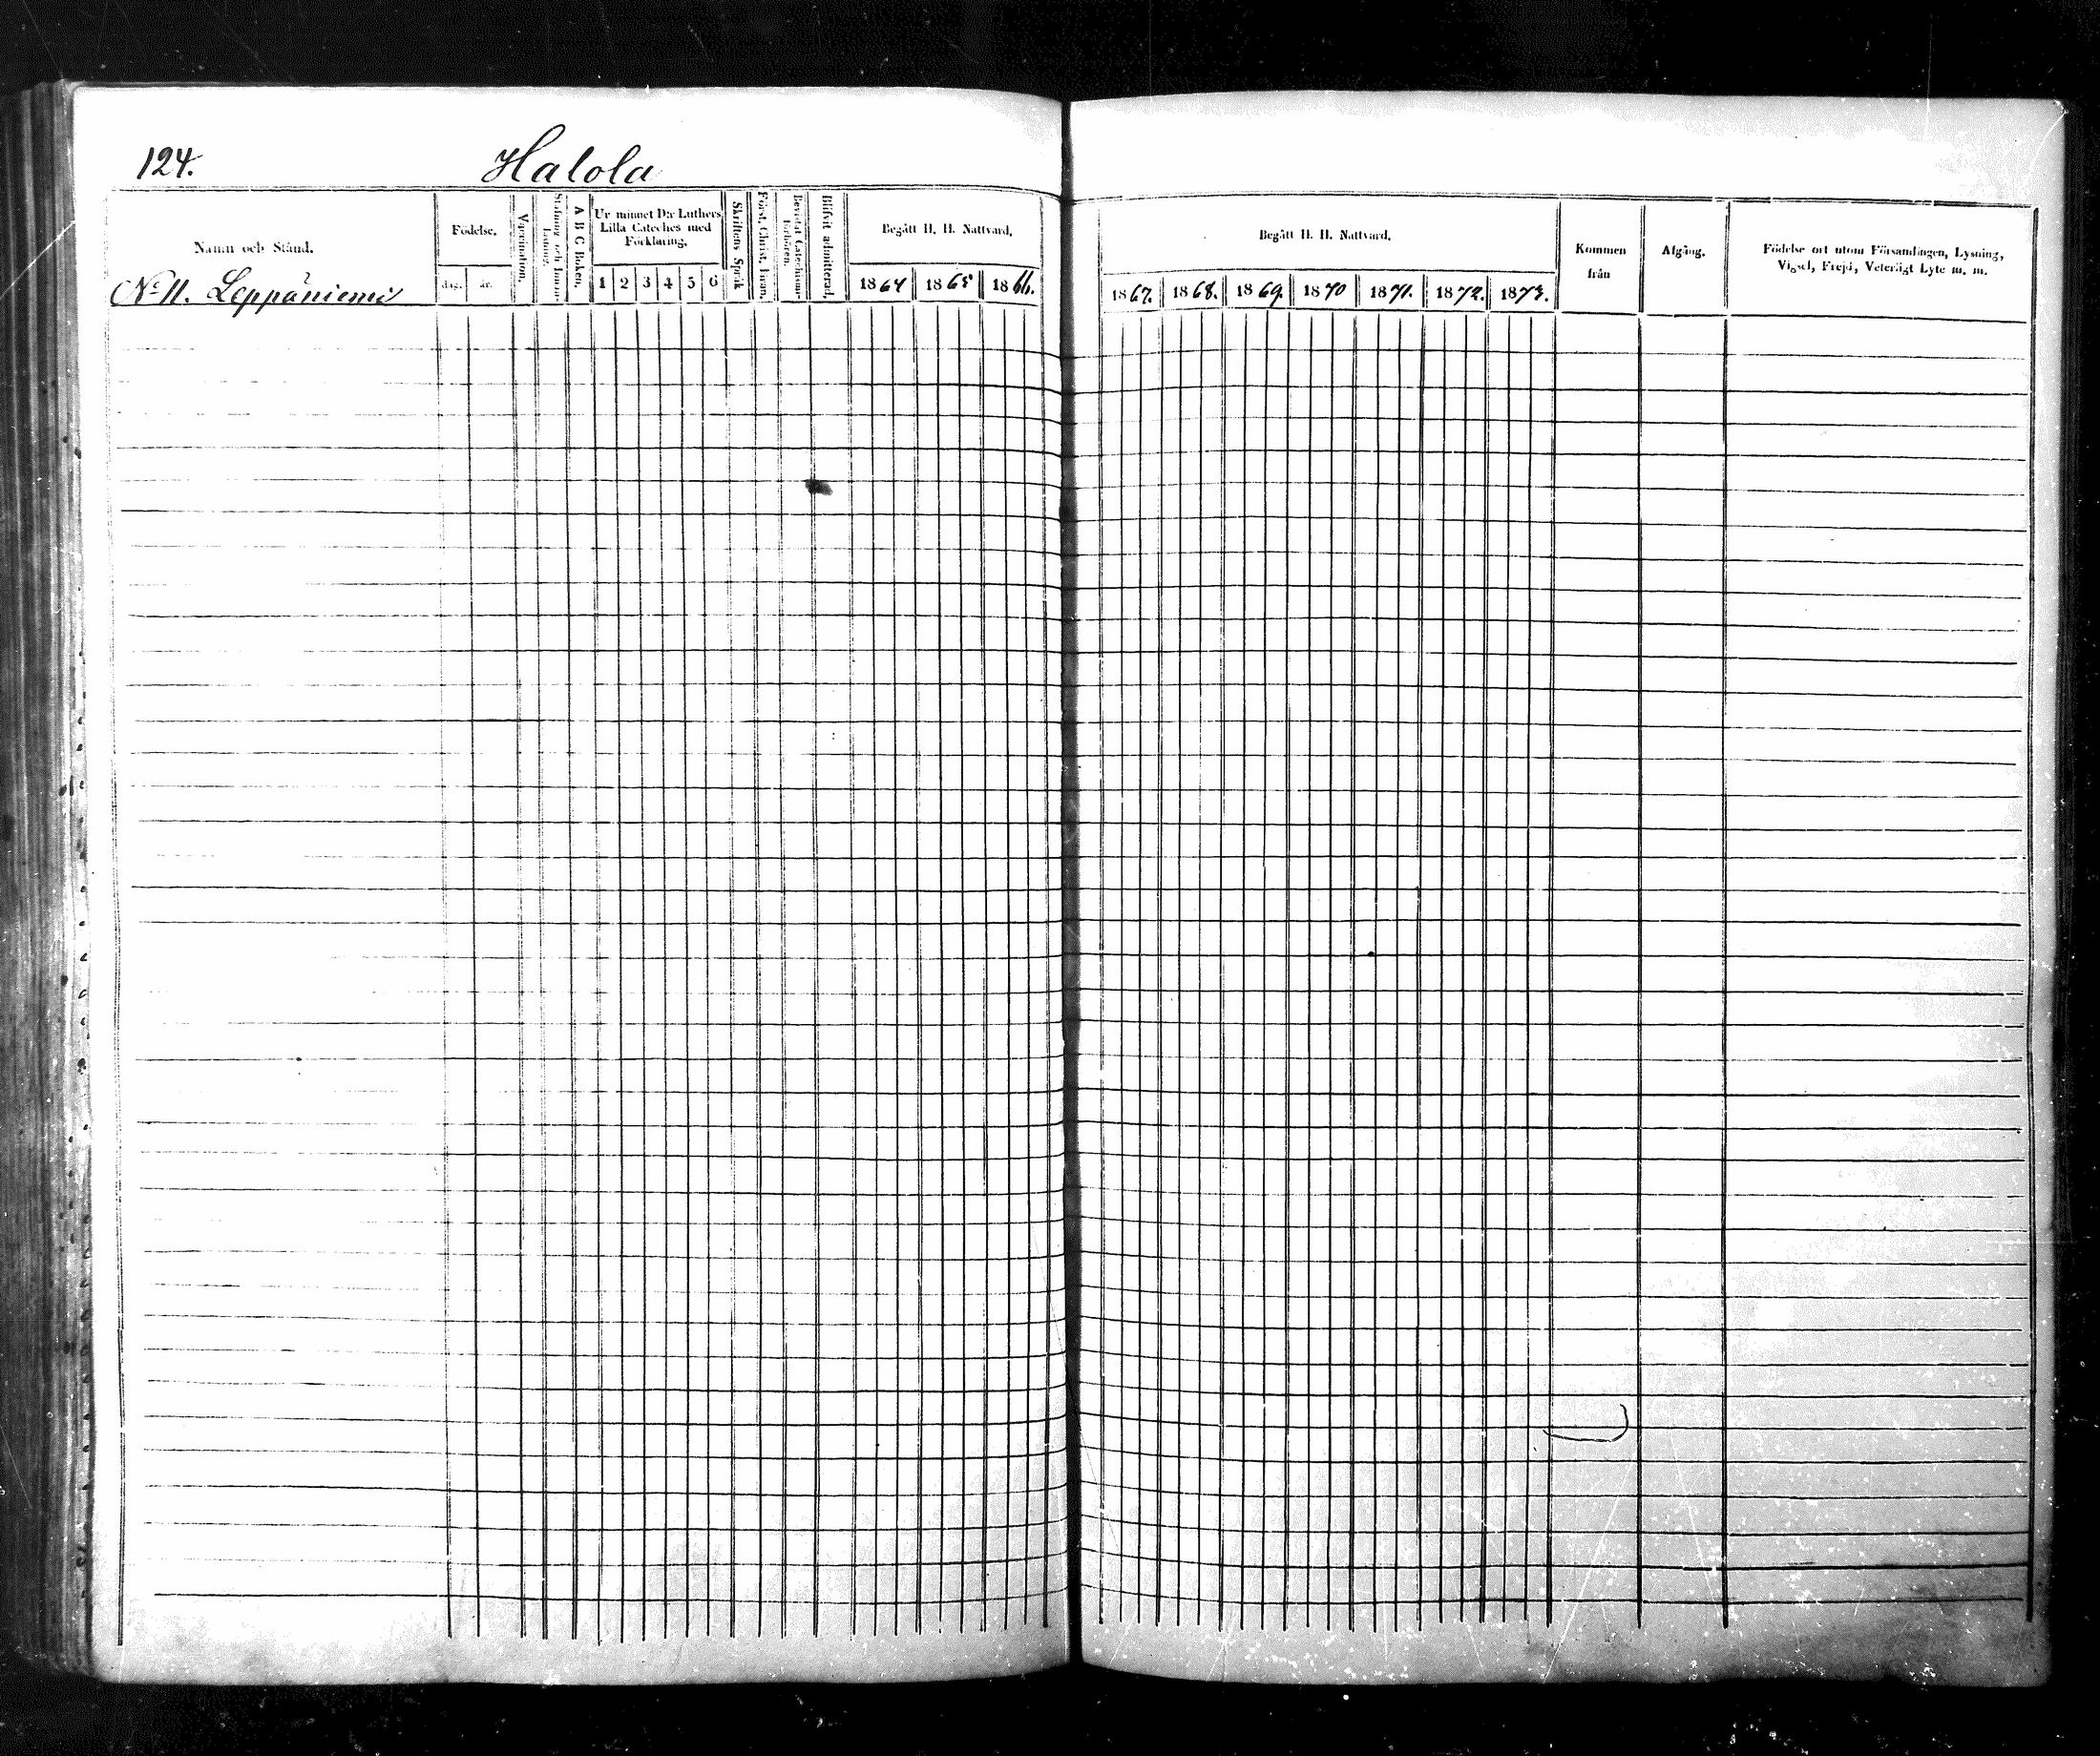 124. Halola
Namn och Stånd.
No 11. Leppäniemi
Födelse.
dag. år.
Vaccination.
Stafning och Innan-
läsning.
A B C Boken.
Ur minnet D:r Luthers
Lilla Cateches med
Förklaring.
1 2 3 4 5 6
Skriftens Språk
Först. Christ. Inran.
Bevistat Catechismi-
förhören.
Blifvit admitterad.
Begått H. H. Nattvard.
1864 1865 1866.
Begått H. H. Nattvard.
1867. 1868. 1869. 1870 1871. 1872. 1873.
Kommen
från
Afgång.
Födelse ort utom Församlingen, Lysning,
Vigsel, Frejd, Veterligt Lyte m. m.